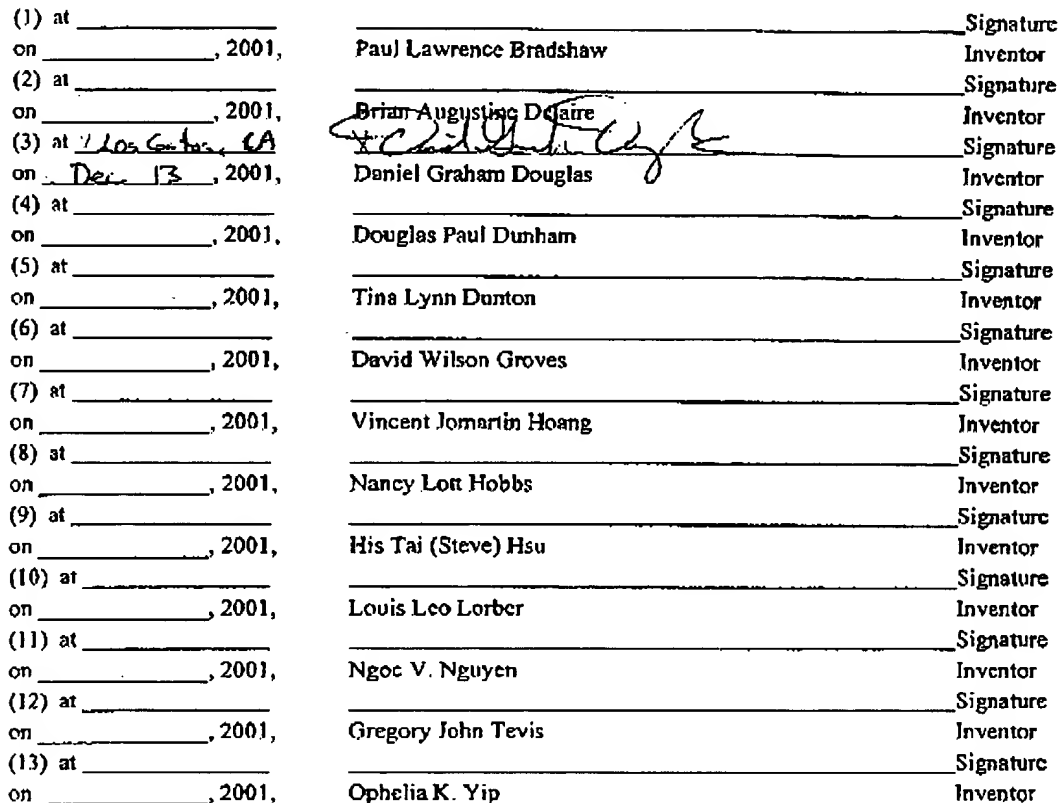 (1) at Signature
on , 2001, Paul Lawrence Bradshaw Inventor
(2) at Signature
on , 2001, Brian Augustine Delaire Inventor
(3) at Los Gatos, CA Signature
on Dec 13, 2001, Daniel Graham Douglas Inventor
(4) at Signature
on , 2001, Douglas Paul Dunham Inventor
(5) at Signature
on , 2001, Tina Lynn Dunton Inventor
(6) at Signature
on , 2001, David Wilson Groves Inventor
(7) at Signature
on , 2001, Vincent Jomartin Hoang Inventor
(8) at Signature
on , 2001, Nancy Lott Hobbs Inventor
(9) at Signature
on , 2001, His Tai (Steve) Hsu Inventor
(10) at Signature
on , 2001, Louis Leo Lorber Inventor
(11) at Signature
on , 2001, Ngoc V. Nguyen Inventor
(12) at Signature
on , 2001, Gregory John Tevis Inventor
(13) at Signature
on , 2001, Ophelia K. Yip Inventor